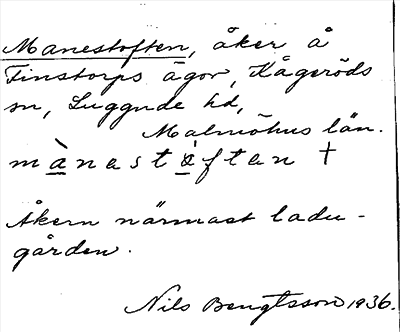 Manestoften, åker å
Finstorps ägor, Kågeröds
sn, Luggude hd,
Malmöhus län.
mànastáftan †
Åkern närmast ladu-
gården.
Nils Bengtsson 1936.